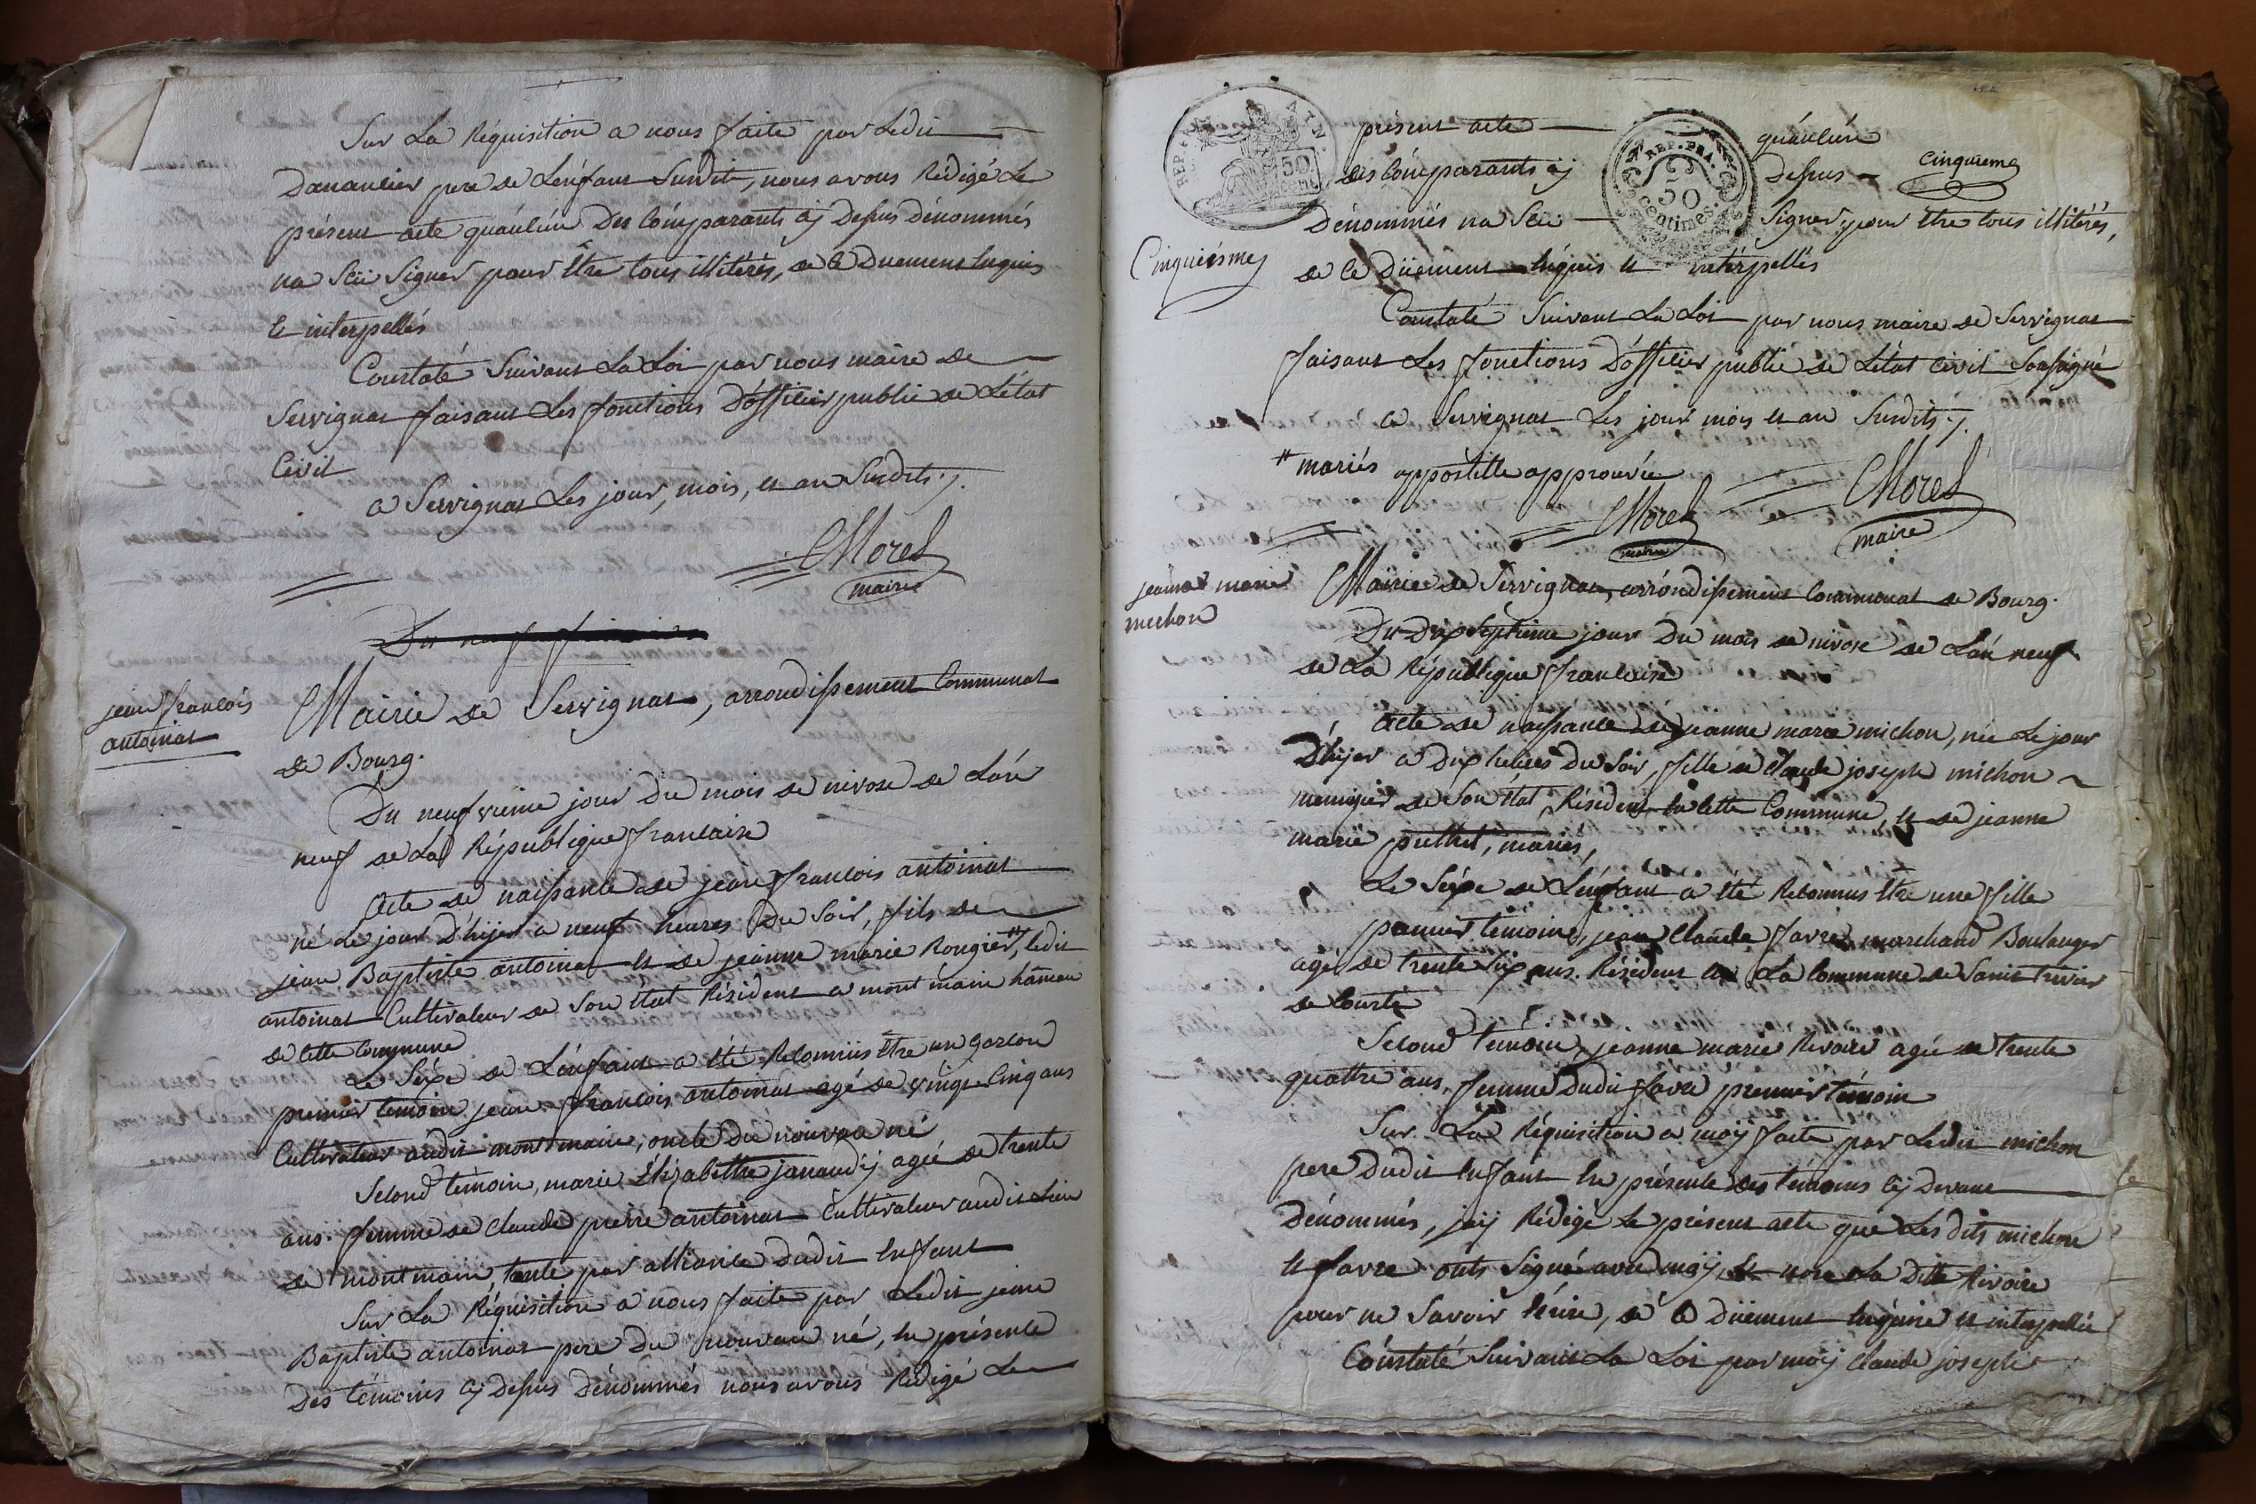 Sur La Réquisition a nous faite par Ledit
Danancier pere de Lénfant Surdit, nous avons Rédigé Le
présent acte quáulún Des Cómparants cÿ Dessus Dénommés
na Sçu Signer pour Être tous illitérés, de Ce Duement Enquis
Et interpellés
Constaté Suivant La Loi par nous maire de
Servignat faisant Les fonctions Dófficier public de Létat
Civil
a Servignat Les jour, mois, et an Surdits ./.
Morel
maire
Du neuf
jean françois
antoinat
Mairie de Servignat, arrondissement Communal
de Bourg.
Du neufvieme jour du mois de nivose de Lán
neuf de La République francaise
Acte de naissance de jean françois antoinat
né Le jour D'hijer a neuf heures Du Soir, fils de
jean Baptiste antoinat et de jeanne marie Rougier #, ledit
antoinat Cultivateur de Son État Résident a mont main hâmeau
de Cette Commune
Le Séxe de Lénfant a Été Reconnus Être un garcon
premier temoin jean françois antoinat agé de vingt Cinq ans
Cultivateur audit montmain, oncle du nouveau né
Second témoin, marie Elizabethe janaudÿ agée de trente
ans. femme de Claude pierre antoinat Cultivateur audit Lieu
de montmain, tante par alliance dudit Enfant
Sur La Réquisition a nous faite par Ledit jean
Baptiste antoinat pere du nouveau né, En présence
Des témoins cÿ Dessus Dénommés nous avons Rédigé Le
REP. FRA.
50
centimes
AIN.
50
présent acte quáulún
des Cómparants cÿ Dessus
Cinquieme
Dénommés na Sçu Signer, pour Être tous illitérés,
Cinquiéme
de Ce Düement Enquis et interpellés
Constaté Suivant La Loi par nous maire de Servignat
faisant Les fonctions Dófficier public de Létat Civil Soussigné
a Servignat Les jour mois et an Surdits ./.
# mariés appostille approuvée
Morel
maire
Morel
maire
jeanne marie
michon
Mairie de Servignat, arróndissement Communal de Bourg.
Du Dix Séptieme jour Du mois de nivose de Lán neuf
de La République francaise
Acte de naissance de jeanne marie michon, née Le jour
D'hijer a Dix heures Du Soir, fille de Claude joseph michon
meunier de Son État Résident En Cette Commune, et de jeanne
marie puthet, mariés,
Le Séxe de Lénfant a Été Reconnus Être une fille
premier témoin, jean Claude favre marchand Boulanger
agé de trente Six ans. Résident En La Commune de Saint trivier
de Courte
Second témoin jeanne marie Rivoire agée de trente
quattre ans, femme dudit favre premier témoin
Sur La Réquisition a moÿ faite par Ledit michon
pere Dudit Enfant En présence Des témoins cÿ Devant
Dénommés, jaÿ Rédigé Le présent acte que Les dits michon
et favre onts Signé avec moÿ, et non La Ditte Rivoire
pour ne Savoir Ecrire, dé Ce Düement Enquise et interpellée
Cónstaté Suivant La Loi par moÿ Claude joseph